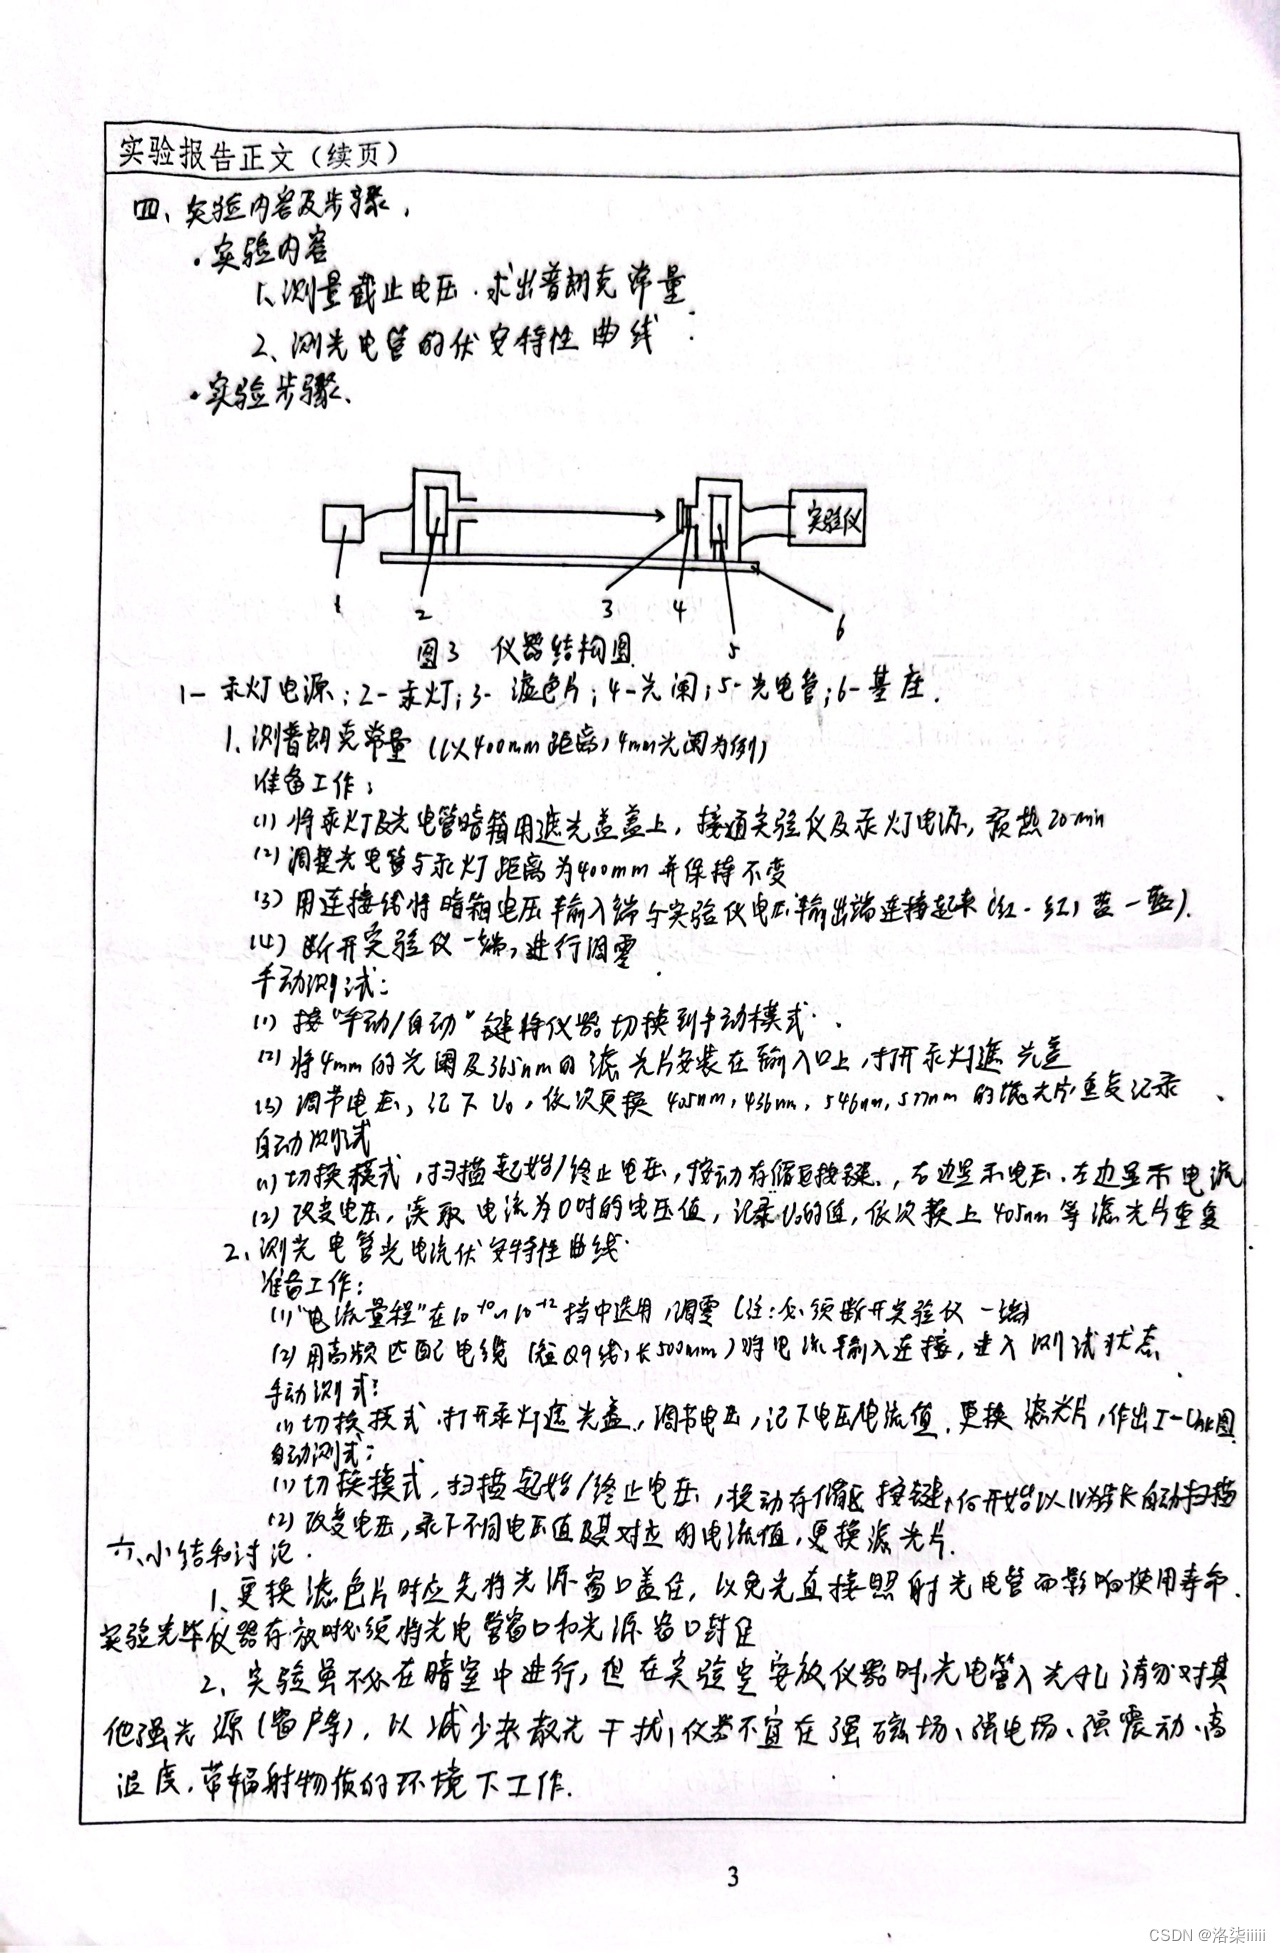 实验报告正文（续页）
四、实验内容及步骤，
·实验内容
1、测量截止电压．求出普朗克常量
2、测光电管的伏安特性曲线．
·实验步骤、
实验仪
1 2 3 4 5 6
图3 仪器结构图
1-汞灯电源；2-汞灯；3-滤色片；4-光阑；5-光电管；6-基座．
1、测普朗克常量（以400mm距离，4mm光阑为例）
准备工作：
(1) 将汞灯及光电管暗箱用遮光盖盖上，接通实验仪及汞灯电源，预热20min
(2) 调整光电管与汞灯距离为400mm并保持不变
(3) 用连接线将暗箱电压输入端与实验仪电压输出端连接起来（红-红，蓝-蓝）．
(4) 断开实验仪一端，进行调零．
手动测试：
(1) 按“手动/自动”键将仪器切换到手动模式．
(2) 将4mm的光阑及365nm的滤光片安装在输入口上，打开汞灯遮光盖
(3) 调节电压，记下U₀，依次更换405nm，436nm，546nm，577nm的滤光片重复记录
自动测试
(1) 切换模式，扫描起始/终止电压，按动存储区按键，右边显示电压．左边显示电流
(2) 改变电压，读取电流为0时的电压值，记录U₀的值，依次换上405nm等滤光片重复
2、测光电管光电流伏安特性曲线．
准备工作：
(1) “电流量程”在10⁻¹⁰~10⁻¹²挡中选用，调零（注：必须断开实验仪一端）
(2) 用高频匹配电缆（短Q9线，长500mm）将电流输入连接，进入测试状态
手动测试：
(1) 切换模式．打开汞灯遮光盖，调节电压，记下电压电流值．更换滤光片，作出I-U_AK图．
自动测试：
(1) 切换模式，扫描起始/终止电压，按动存储区按键，开始以1V为步长自动扫描
(2) 改变电压，录下不同电压值及其对应的电流值，更换滤光片．
六、小结和讨论．
1、更换滤色片时应先将光源窗口盖住，以免光直接照射光电管而影响使用寿命．
实验完毕仪器存放时必须将光电管窗口和光源窗口封住
2、实验虽不必在暗室中进行，但在实验室安放仪器时，光电管入光孔请勿对其
他强光源（窗户等），以减少杂散光干扰，仪器不宜在强磁场、强电场、强震动、高
温度，带辐射物质的环境下工作．
3
CSDN @洛柒iiiii